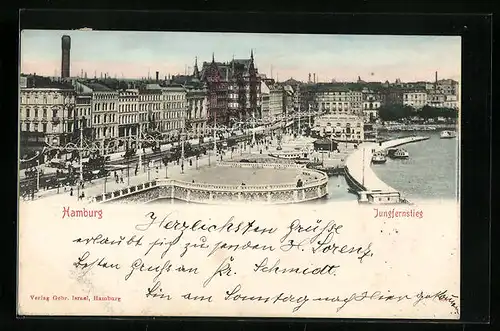 Hamburg
Jungfernstieg
Herzlichsten Grüße
erlaubt sich zu senden H. Lorenz.
Besten Gruß an Fr. Schmidt.
bin am Sonntag nach hier
Verlag Gebr. Israel, Hamburg